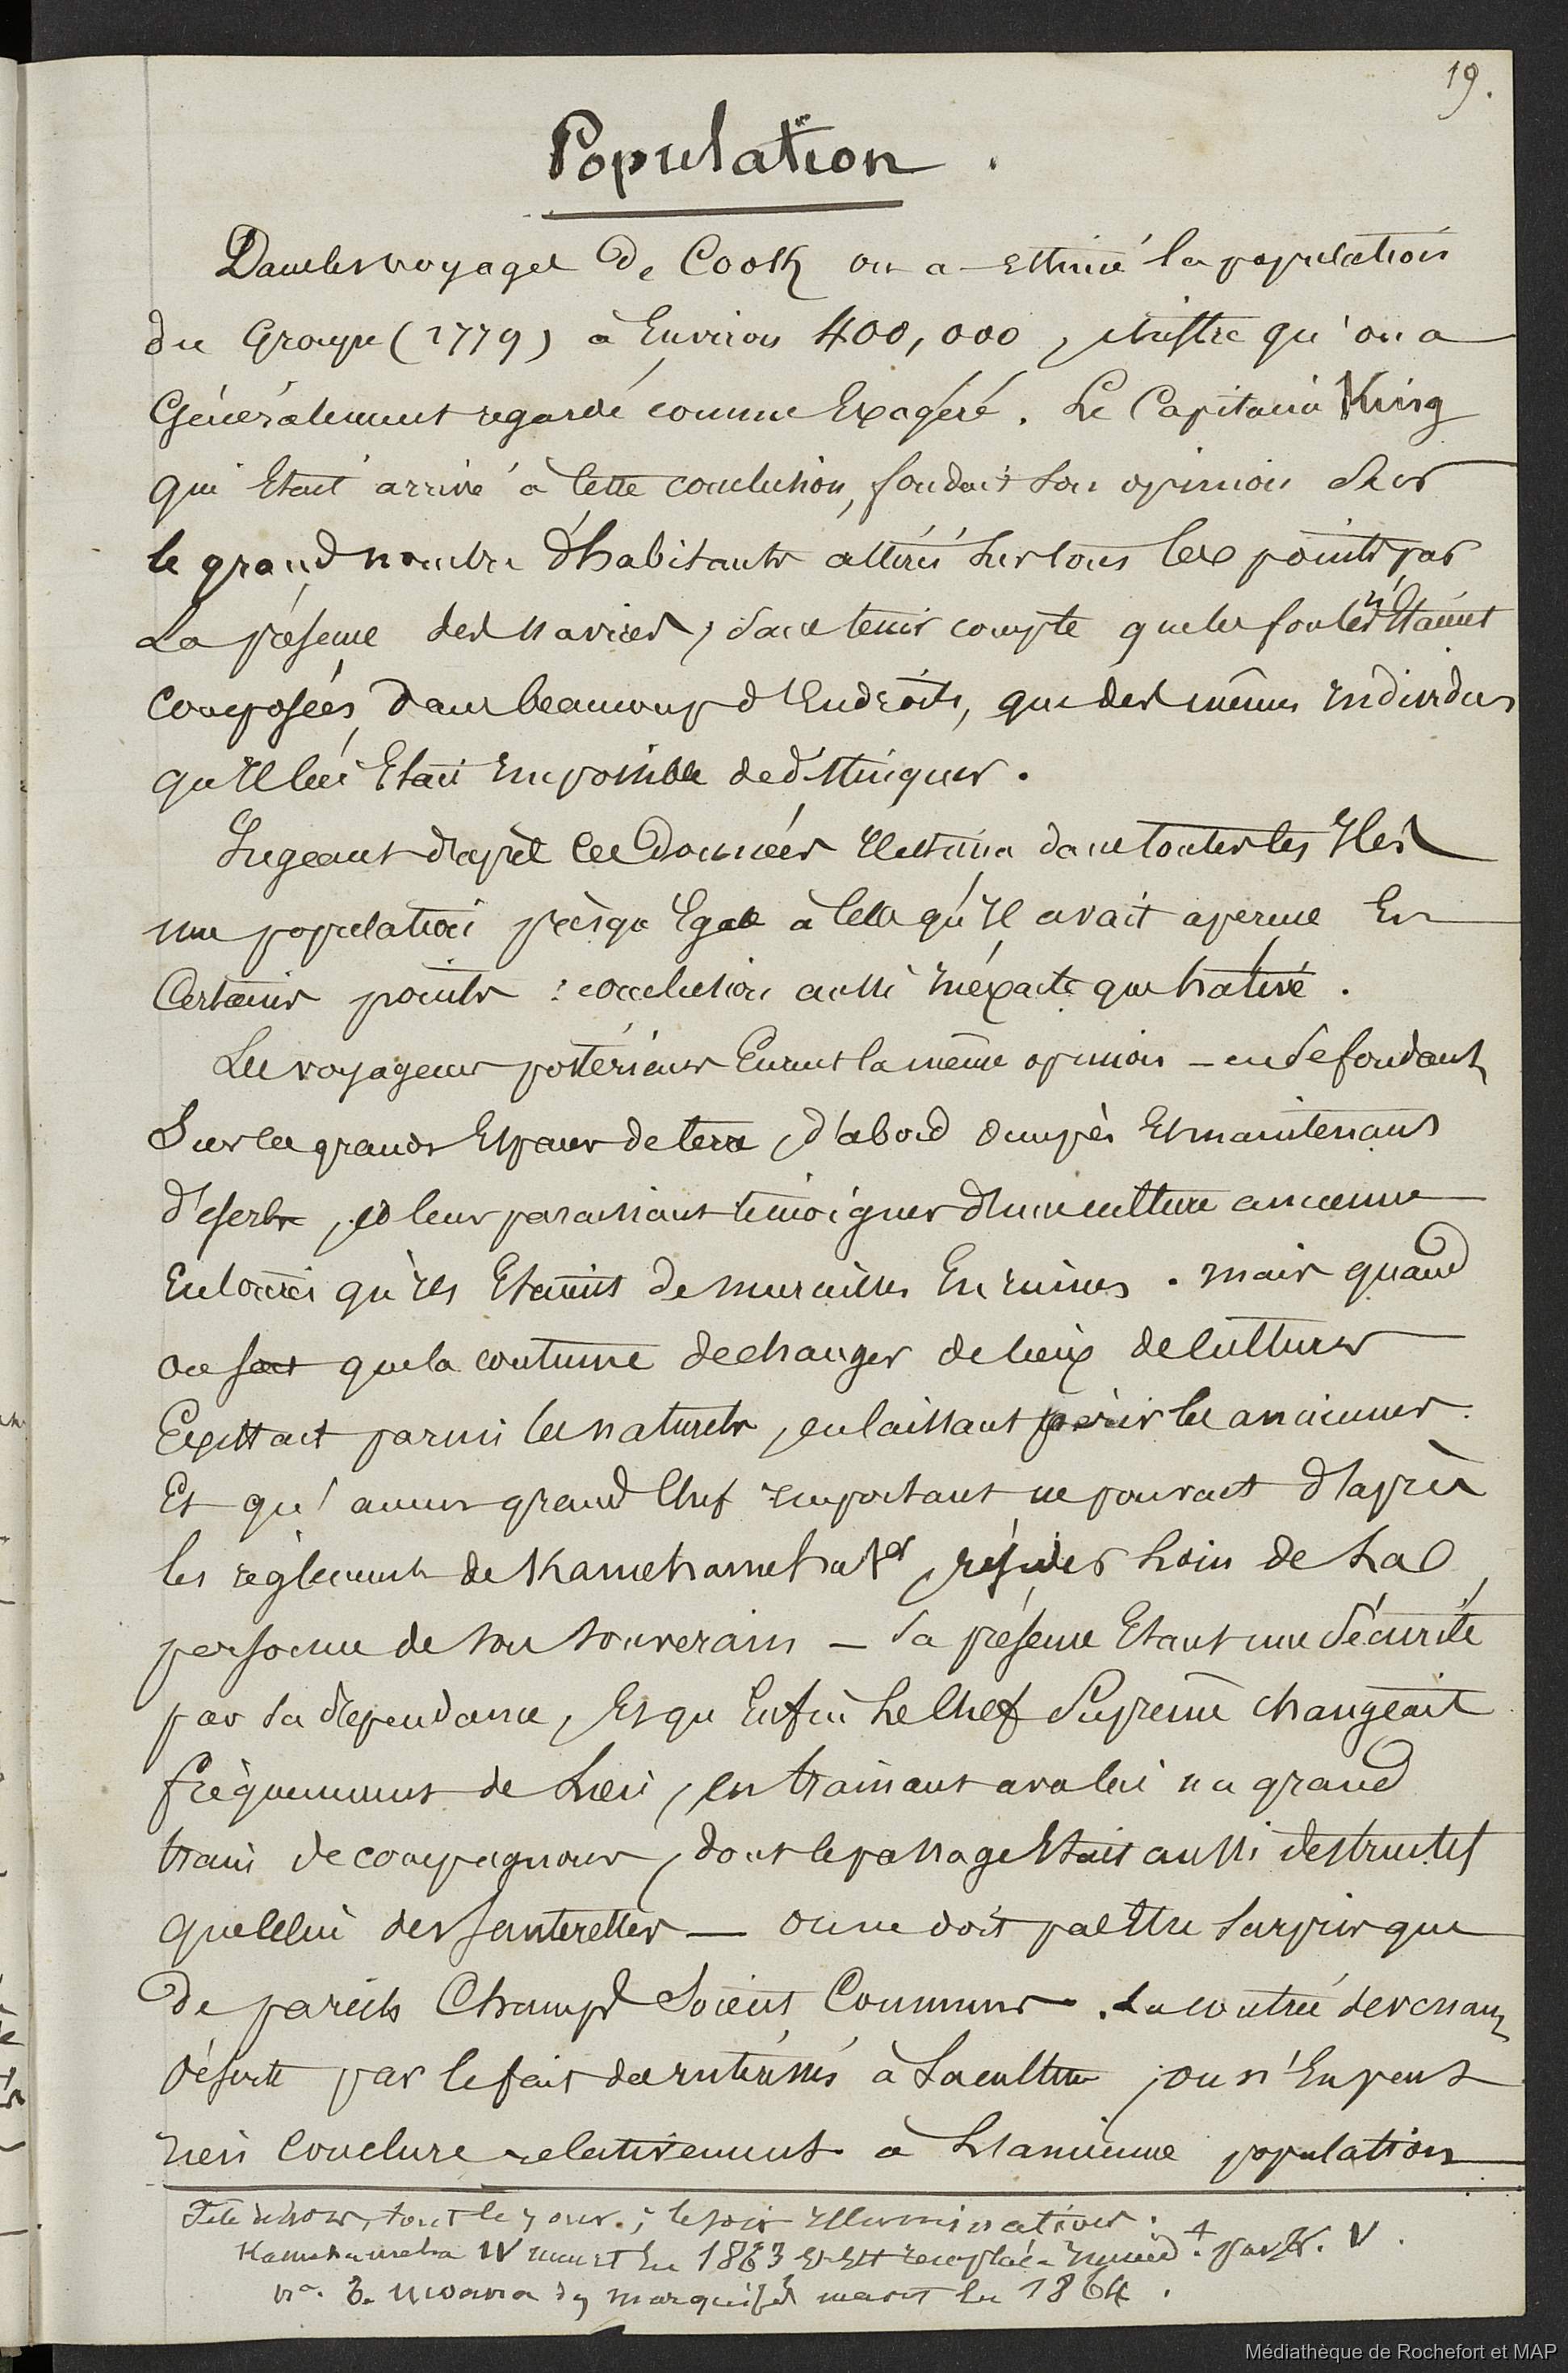 19.
Population.
Dans les voyages de Cook on a estimé la population
du Groupe (1779) à Environ 400,000, chiffre qu'on a
Généralement regardé comme Exagéré. Le Capitaine King
qui Etait arrivé à Cette conclusion, fondait son opinion sur
le grand nombre d'habitants attirés sur tous les points par
La présence des navires, sans tenir compte que les foules n'étaient
composées, dans beaucoup d'Endroits, que des mêmes individus
qu'Il lui Etait impossible de distinguer.
Jugeant d'après ces Données Il estima dans toutes les Iles
une population presque Egale à Celle qu'Il avait aperçue En
Certains points : conclusion aussi inéxacte que hative.
Les voyageurs postérieurs Eurent la même opinion – en se fondant
Sur les grands Espaces de terre, d'abord occupés Et maintenant
déserts, et leur paraissant témoigner d'une culture ancienne
Entourés qu'ils Etaient de murailles En ruines. mais quand
on sait que la coutume de changer de lieux de Cultures
Existait parmi les naturels, en laissant périr les anciennes.
Et qu'aucun grand Chef important ne pouvait d'après
les règlements de Kamehameha 1er, résider Loin de La
personne de son souverain – sa présence Etant une sécurité
par sa dépendance, Et qu'Enfin Le Chef Suprème changeait
fréquemment de Lieu, entrainant avec lui un grand
train de compagnons, dont le passage Etait aussi destructif
que Celui des sauterelles – on ne doit pas Etre surpris que
de pareils Champs Soient Communs. La contrée devenant
déserte par le fait des intérressés à La culture, on n'En peut
rien Conclure relativement à L'ancienne population
Kamehameha IV meurt En 1863 Et Est remplacé par K. V.
marquises meurt En 1864.